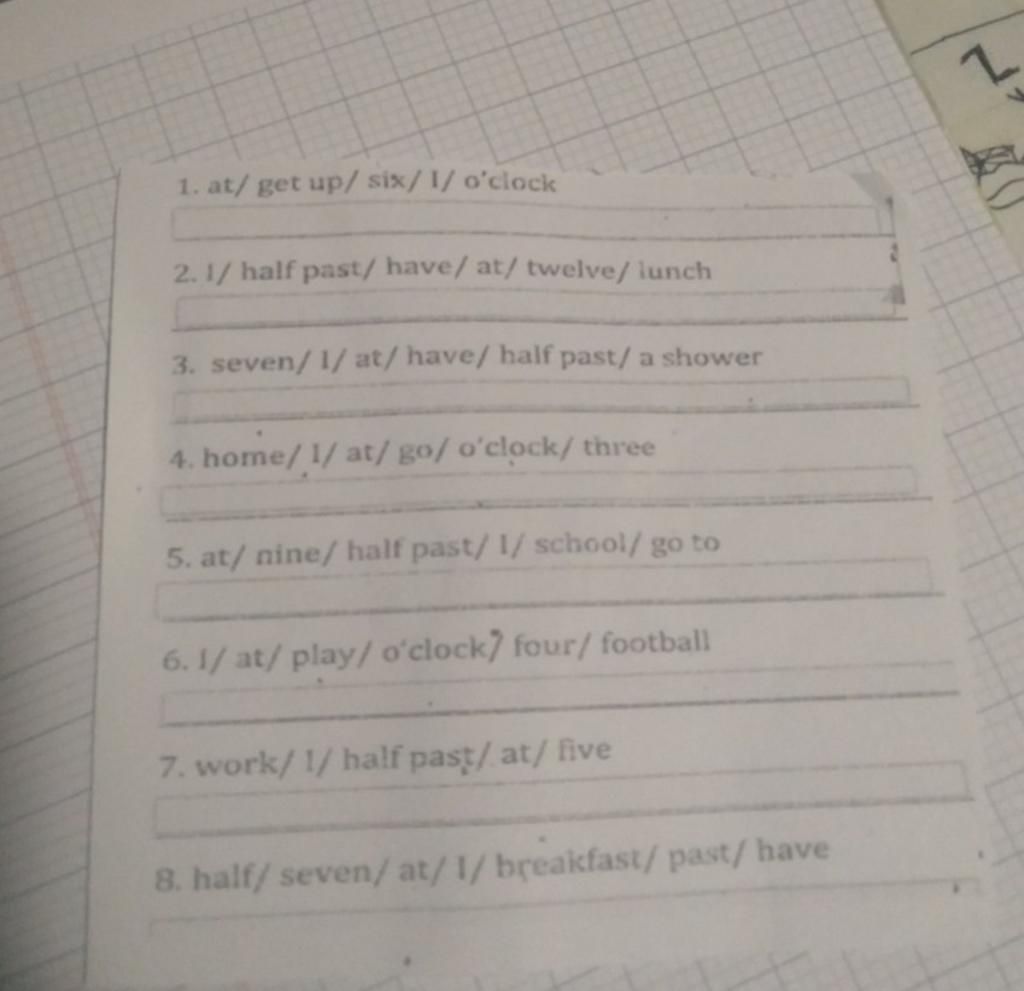 1. at/ get up/ six/ I/ o'clock
2. I/ half past/ have/ at/ twelve/ lunch
3. seven/ I/ at/ have/ half past/ a shower
4. home/ I/ at/ go/ o'clock/ three
5. at/ nine/ half past/ I/ school/ go to
6. I/ at/ play/ o'clock/ four/ football
7. work/ I/ half past/ at/ five
8. half/ seven/ at/ I/ breakfast/ past/ have